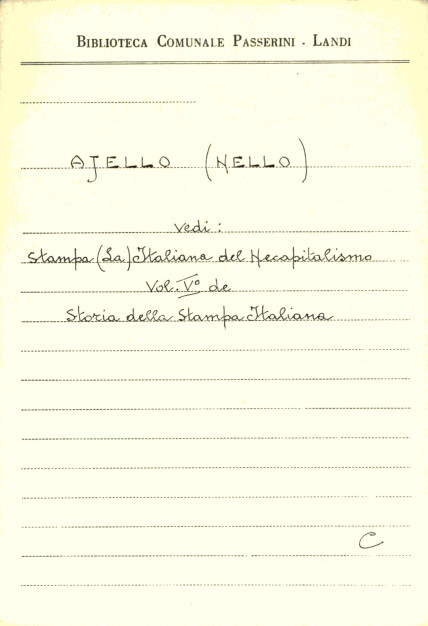 BIBLIOTECA COMUNALE PASSERINI - LANDI
AJELLO (NELLO)
vedi:
Stampa (La) Italiana del Necapitalismo
Vol. Vº de
Storia della Stampa Italiana
C